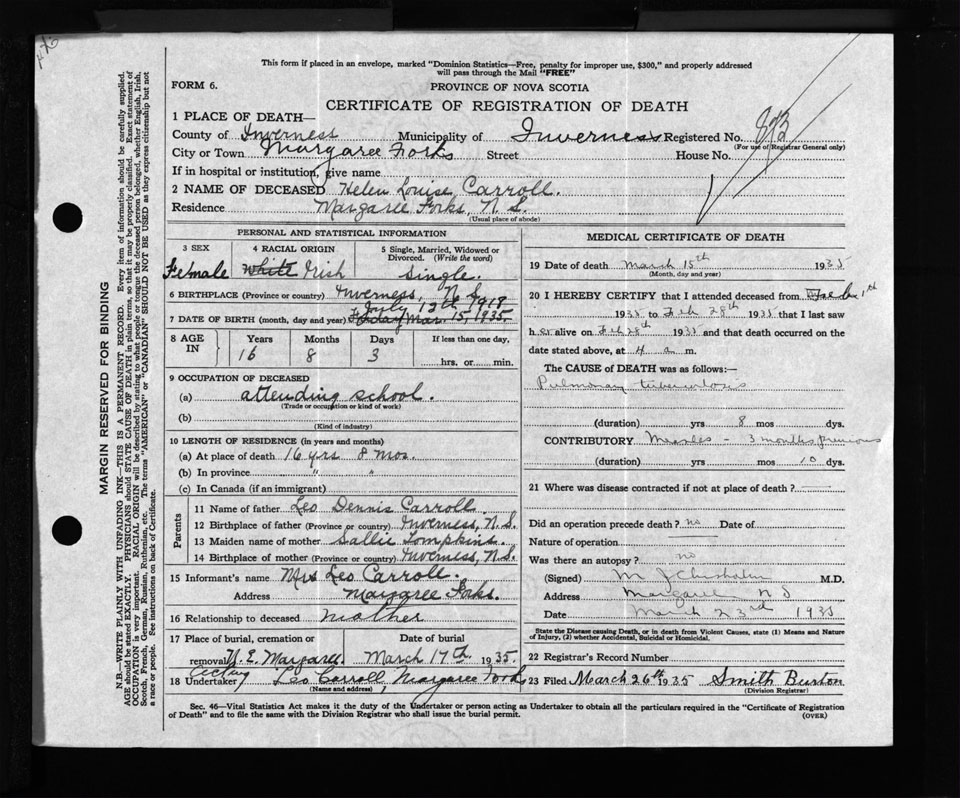 This form if placed in an envelope, marked "Dominion Statistics—Free, penalty for improper use, $300," and properly addressed
will pass through the Mail "FREE"
FORM 6.
PROVINCE OF NOVA SCOTIA
CERTIFICATE OF REGISTRATION OF DEATH
1 PLACE OF DEATH—
County of Inverness Municipality of Inverness Registered No. 873
(For use of Registrar General only)
City or Town Margaree Forks Street House No.
If in hospital or institution, give name
2 NAME OF DECEASED Helen Louise Carroll.
Residence Margaree Forks, N. S.
(Usual place of abode)
PERSONAL AND STATISTICAL INFORMATION
3 SEX 4 RACIAL ORIGIN 5 Single, Married, Widowed or
Divorced. (Write the word)
Female White Irish Single.
6 BIRTHPLACE (Province or country) Inverness, N. S.
July 12th, 1918
7 DATE OF BIRTH (month, day and year) Mar. 15, 1935.
8 AGE IN Years Months Days If less than one day,
16 8 3 hrs. or min.
9 OCCUPATION OF DECEASED
(a) attending school.
(Trade or occupation or kind of work)
(b)
(Kind of industry)
10 LENGTH OF RESIDENCE (in years and months)
(a) At place of death 16 yrs 8 mos.
(b) In province " "
(c) In Canada (if an immigrant)
Parents
11 Name of father Leo Dennis Carroll.
12 Birthplace of father (Province or country) Inverness, N.S.
13 Maiden name of mother Sallie Tompkins.
14 Birthplace of mother (Province or country) Inverness, N.S.
15 Informant's name Mrs Leo Carroll.
Address Margaree Forks.
16 Relationship to deceased mother
17 Place of burial, cremation or Date of burial
removal N. E. Margaree. March 17th 1935.
acting
18 Undertaker Leo Carroll, Margaree Forks
(Name and address)
MEDICAL CERTIFICATE OF DEATH
19 Date of death March 15th 1935
(Month, day and year)
20 I HEREBY CERTIFY that I attended deceased from Feb 1th
1935 to Feb 28th 1935 that I last saw
her alive on Feb 28th 1935 and that death occurred on
date stated above, at 4 a m.
The CAUSE of DEATH was as follows:—
Pulmonary tuberculosis
(duration) yrs 8 mos dys.
CONTRIBUTORY Measles - 3 months previous
(duration) yrs mos 10 dys.
21 Where was disease contracted if not at place of death?
Did an operation precede death? no Date of
Nature of operation
Was there an autopsy? no
(Signed) M J Chisholm M.D.
Address Margaree N S
Date March 23rd 1935
State the Disease causing Death, or in death from Violent Causes, state (1) Means and Nature
of Injury, (2) whether Accidental, Suicidal or Homicidal.
22 Registrar's Record Number
23 Filed March 26th 1935 Smith Burton
(Division Registrar)
Sec. 46—Vital Statistics Act makes it the duty of the Undertaker or person acting as Undertaker to obtain all the particulars required in the "Certificate of Registration
of Death" and to file the same with the Division Registrar who shall issue the burial permit.
(OVER)
MARGIN RESERVED FOR BINDING
N.B.—WRITE PLAINLY WITH UNFADING INK—THIS IS A PERMANENT RECORD. Every item of information should be carefully supplied.
AGE should be stated EXACTLY. PHYSICIANS should STATE CAUSE OF DEATH in plain terms, so that it may be properly classified. Exact statement of
OCCUPATION is very important. RACIAL ORIGIN will be described by stating to what people or tongue the deceased person belonged, whether English, Irish,
Scotch, French, German, Russian, Ruthenian, etc. The terms "AMERICAN" or "CANADIAN" SHOULD NOT BE USED as they express citizenship but not
a race or people. See instructions on back of Certificate.